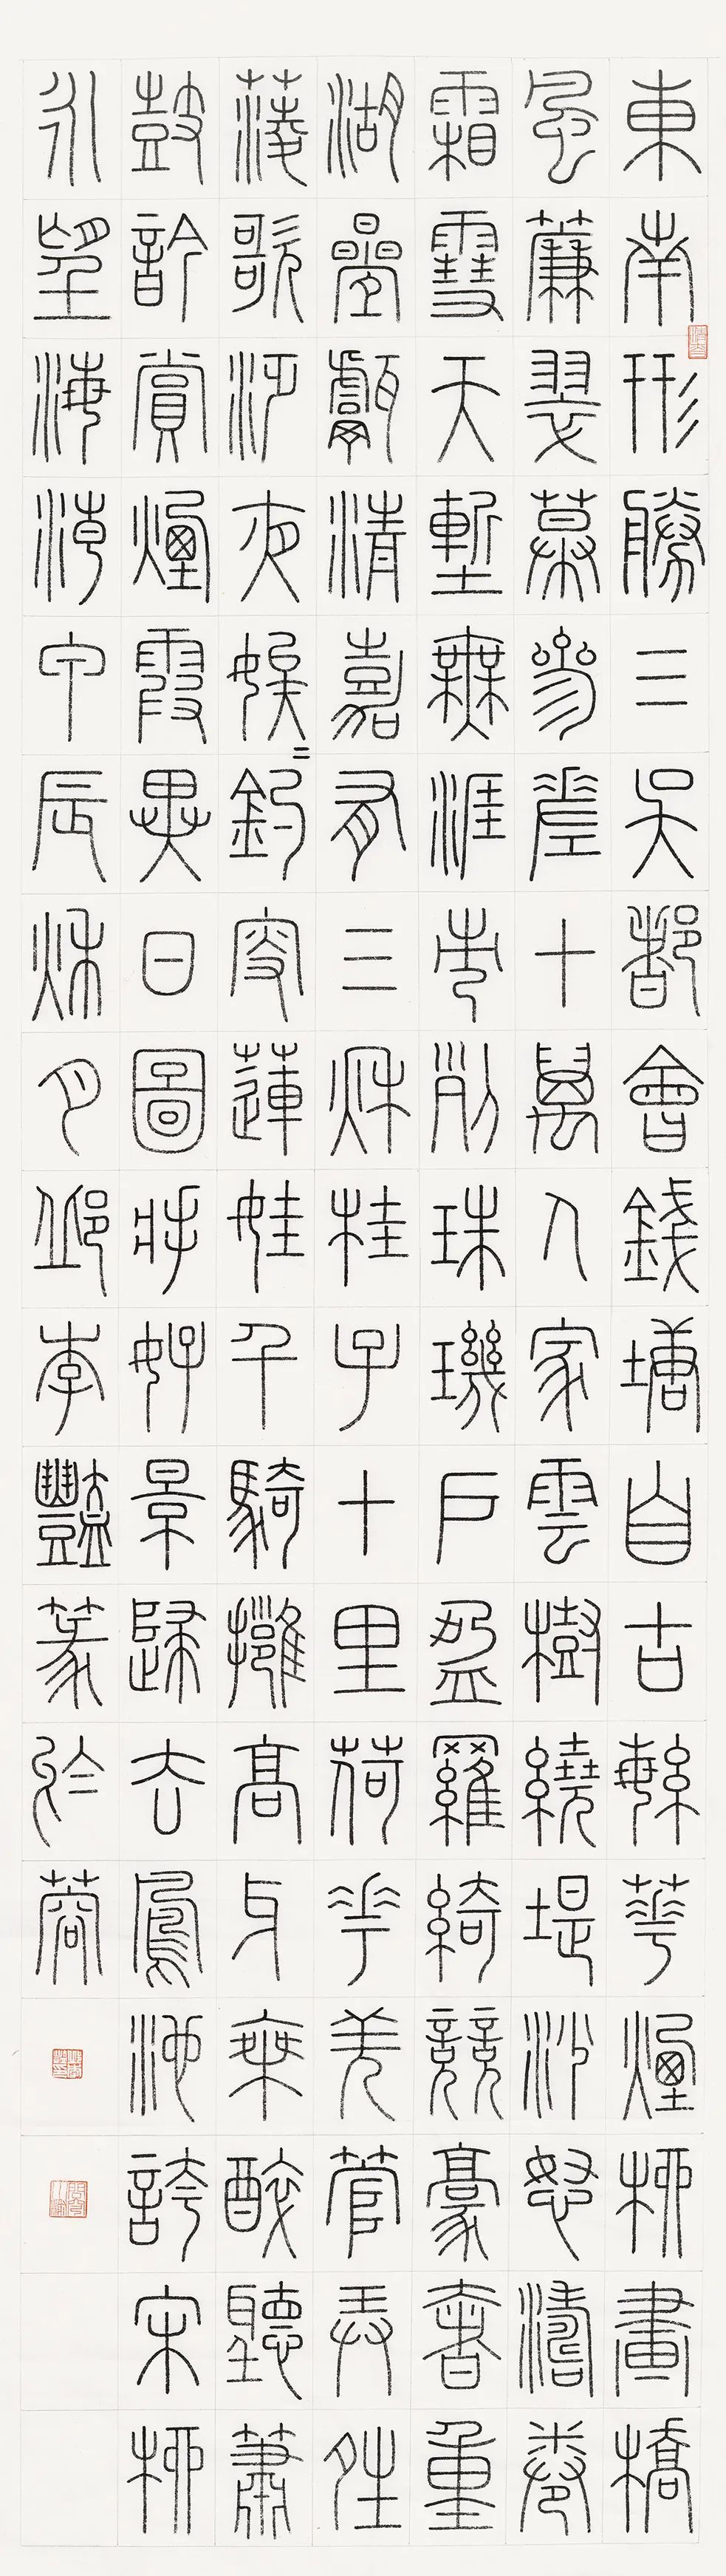 東南形勝三吳都會錢塘自古繁華煙柳畫橋
風簾翠幕參差十萬人家雲樹繞堤沙怒濤卷
霜雪天塹無涯市列珠璣戶盈羅綺競豪奢重
湖疊巘清嘉有三秋桂子十里荷花羌管弄夝
菱歌泛夜娭〓釣叟蓮娃千騎擁高牙乘醉聽簫
鼓訡賞煙霞異日圖將好景歸去鳳池誇宋柳
永望海潮甲辰秋月邱李豔篆於蓉